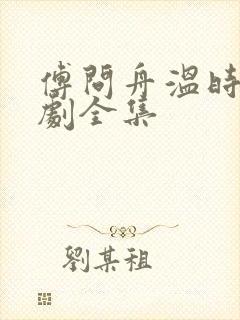 傅問舟溫時
劇全集
劉某祖